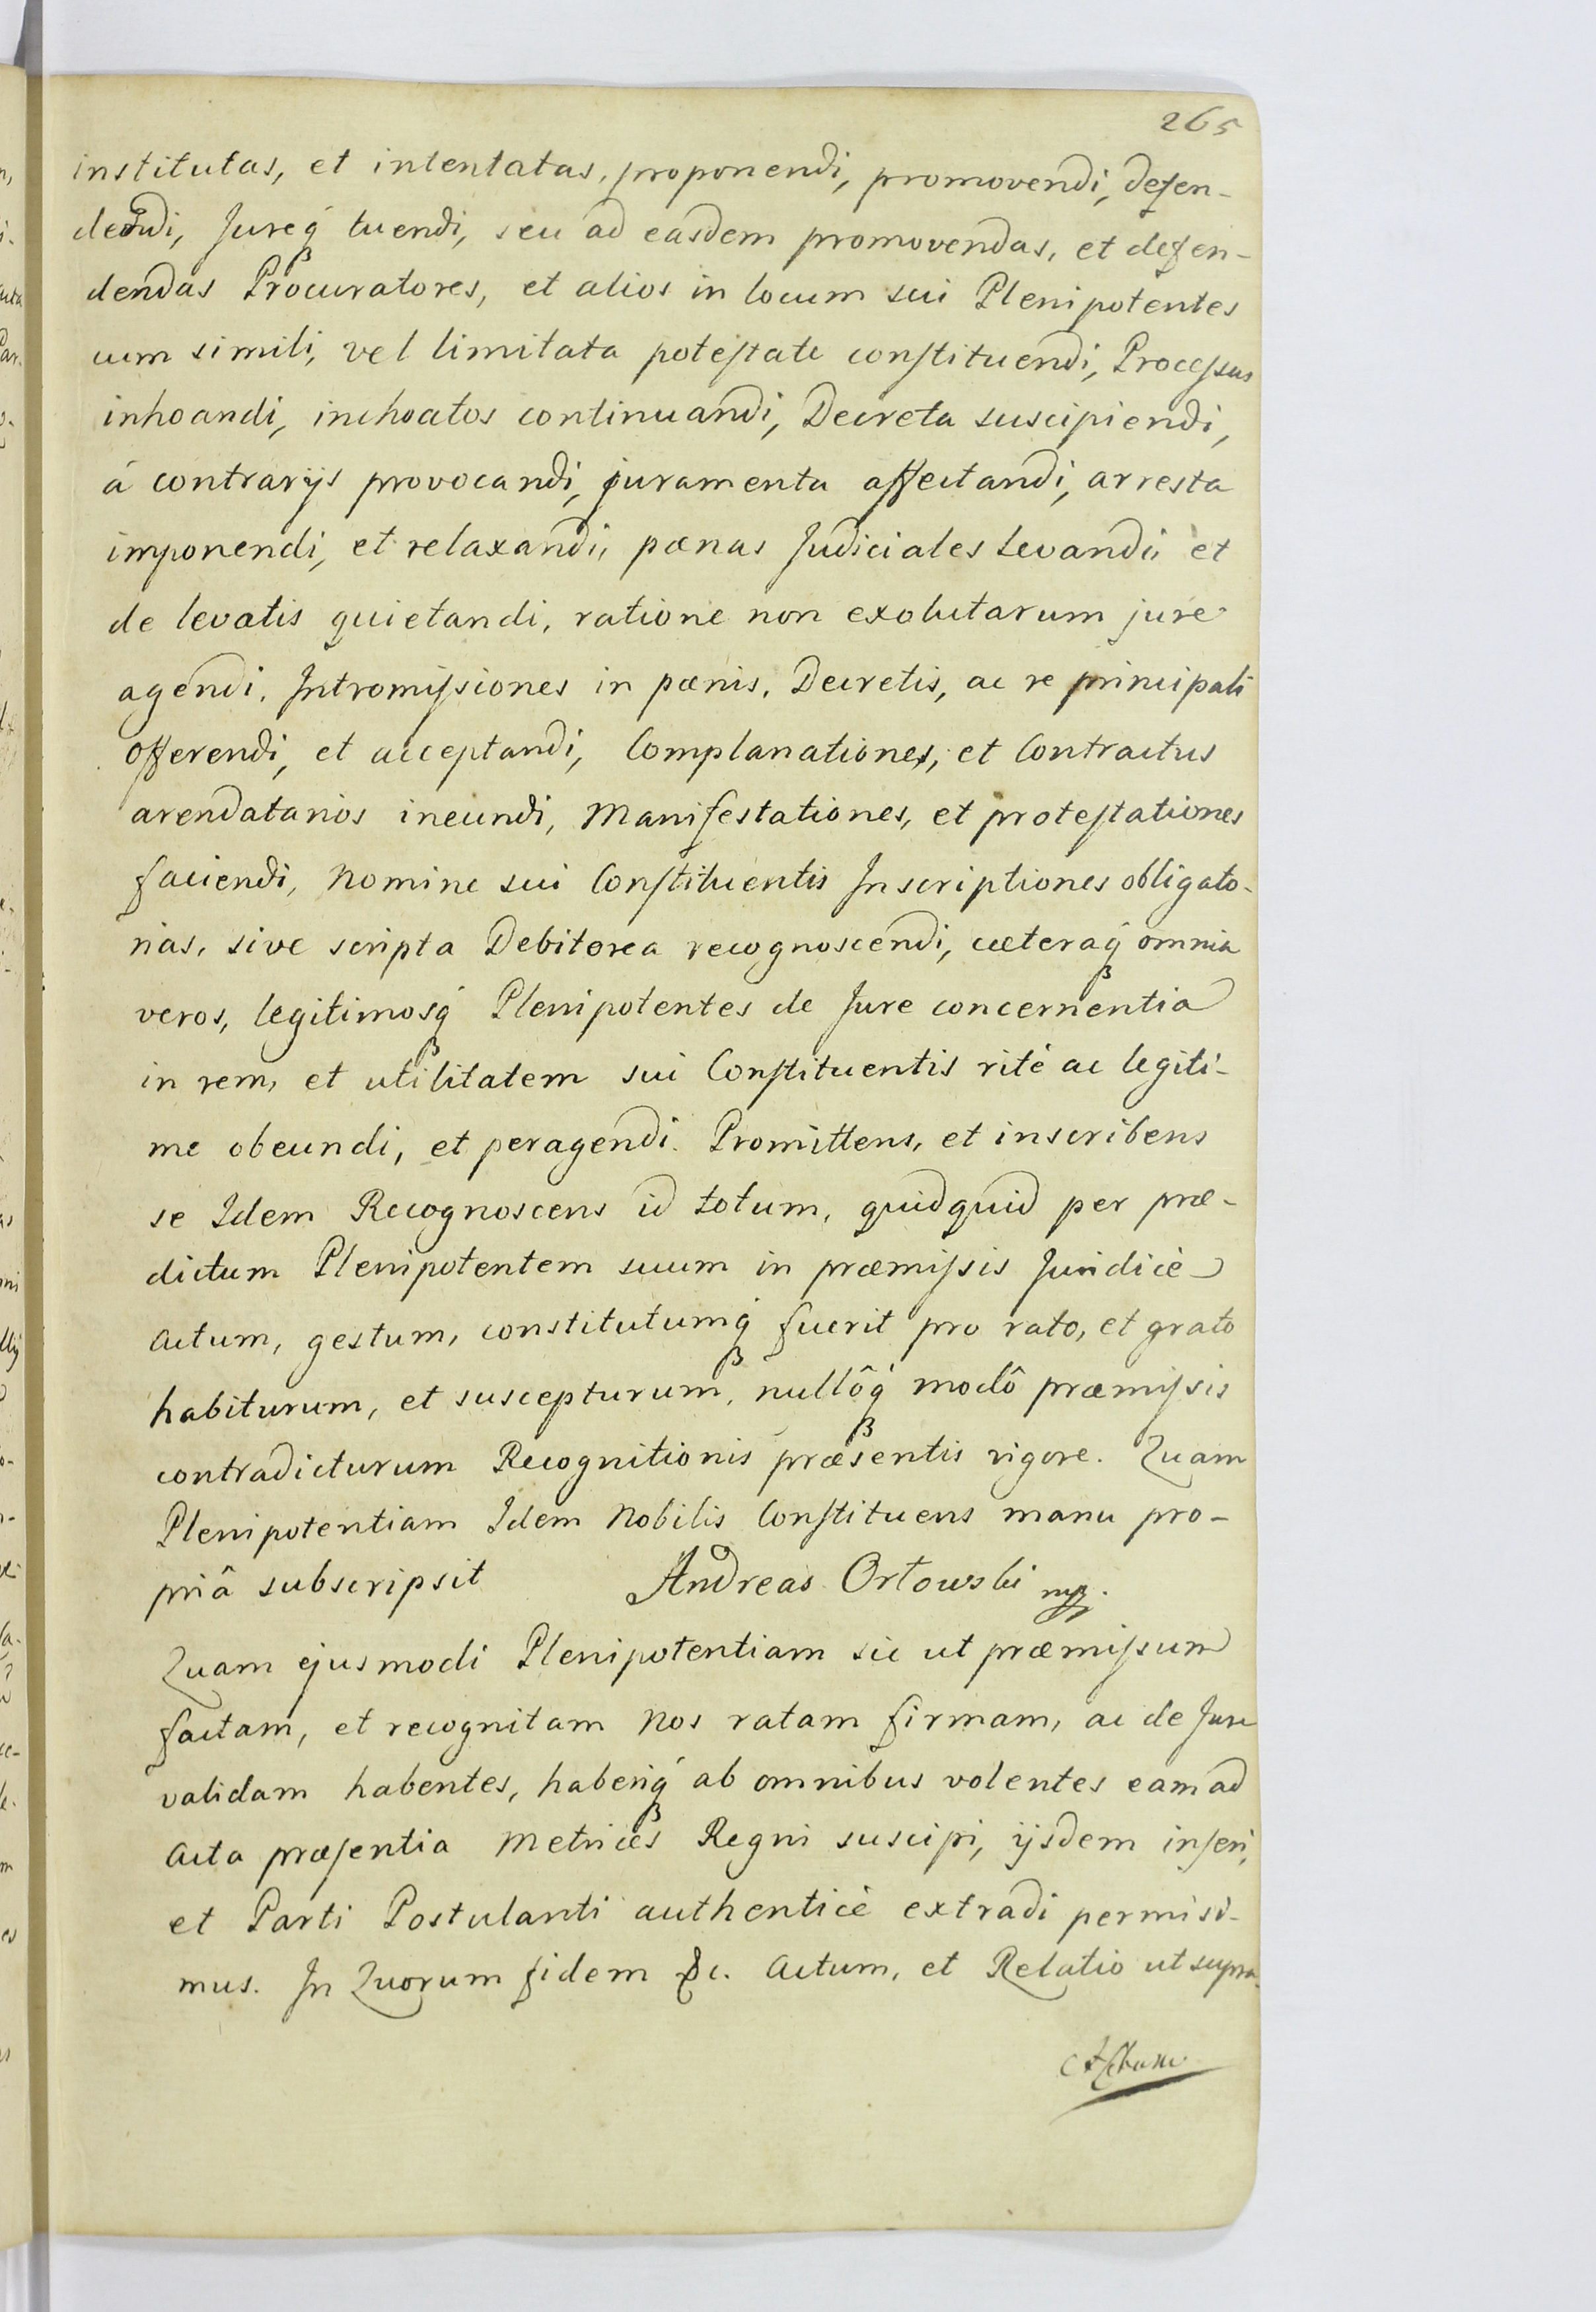 265
institutas, et intentatas, proponendi, promovendi, defen-
dendi, Jureq́ꝫ tuendi, seu ad easdem promovendas, et defen-
dendas Procuratores, et alios in locum sui Plenipotentes
cum simili, vel limitata poteſtate conſtituendi, Proceſsus
inhoandi, inchoatos continuandi, Decreta suscipiendi,
á contrarijs provocandi, juramenta affectandi, arresta
imponendi, et relaxandi, pænas Judiciales levandi, et
de levatis quietandi, ratione non exolutarum jure
agendi. Intromiſsiones in pænis, Decretis, ac re principali
offerendi, et acceptandi, Complanationes, et Contractus
arendatarios ineundi, Manifestationes, et proteſtationes
faciendi, Nomine sui Conſtituentis Inscriptiones obligato-
rias, sive scripta Debitorea recognoscendi, cæteraq́ꝫ omnia
veros, legitimosq́ꝫ Plenipotentes de Jure concernentia
in rem, et utilitatem sui Conſtituentis rité ac legiti-
me obeundi, et peragendi. Promittens, et inscribens
se Idem Recognoscens id totum, quidquid per præ-
dictum Plenipotentem suum in præmiſsis Juridicè
actum, gestum, constitutumq́ꝫ fuerit pro rato, et grato
habiturum, et suscepturum, nullôq́ꝫ modô præmiſsis
contradicturum Recognitionis præsentis vigore. Quam
Plenipotentiam Idem Nobilis Conſtituens manu pro-
priâ subscripsit Andreas Orłowski mp.
Quam ejusmodi Plenipotentiam sic ut præmiſsum
factam, et recognitam Nos ratam firmam, ac de Jure
validam habentes, haberiq́ꝫ ab omnibus volentes eam ad
Acta præſentia Metrices Regni suscipi, ijsdem inſeri,
et Parti Postulanti authenticè extradi permisi-
mus. In Quorum fidem &c. Actum, et Relatio ut supra.